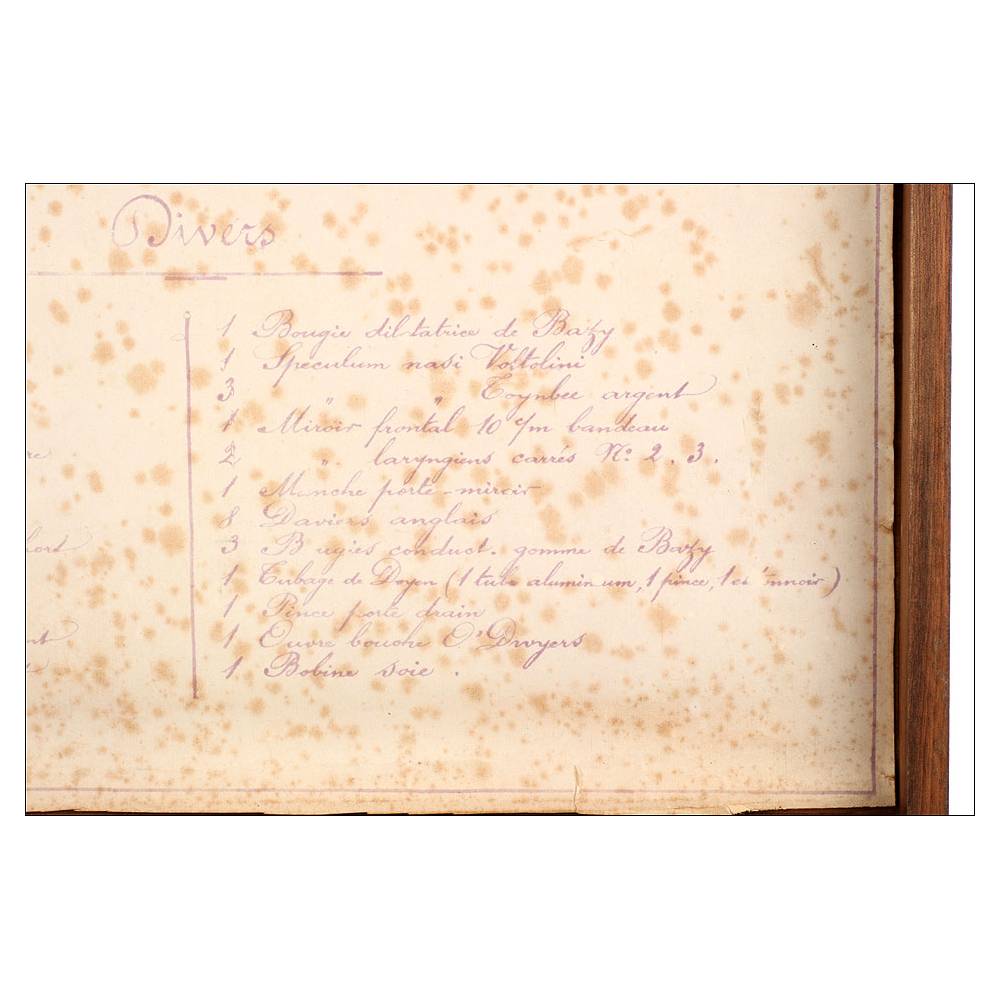 Divers
1 Bougie dilatatrice de Bazy
1 Speculum nasi Voltolini
3 " " Toynbee argent
1 Miroir frontal 10 c/m bandeau
2 " laryngiens carrés Nº 2. 3.
1 Manche porte-miroir
8 Daviers anglais
3 Bougies conduct. gomme de Bazy
1 Tubage de Doyen (1 tube aluminium, 1 pince, 1
1 Pince porte drain
1 Ouvre bouche O'Dwyers
1 Bobine soie.